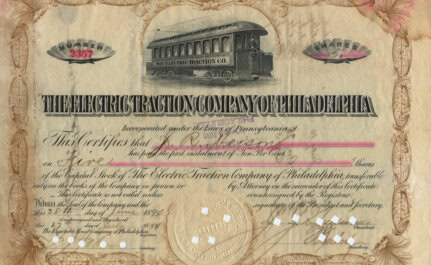 NUMBER
2357
SHARES
ELECTRIC TRACTION CO.
THE ELECTRIC TRACTION COMPANY OF PHILADELPHIA
Incorporated under the Laws of Pennsylvania
This Certifies that
has paid the first instalment of Ten Per Cent
on Five Shares
of the Capital Stock of The Electric Traction Company of Philadelphia, transferable
only on the books of the Company in person or by Attorney on the surrender of this Certificate.
This Certificate is not valid unless countersigned by the Registrar
Witness the Seal of the Company and the signatures of the President and Secretary,
this 28th day of June 1894
Countersigned and Registered
this day of 1894
The Equitable Trust Company of Philadelphia,
President